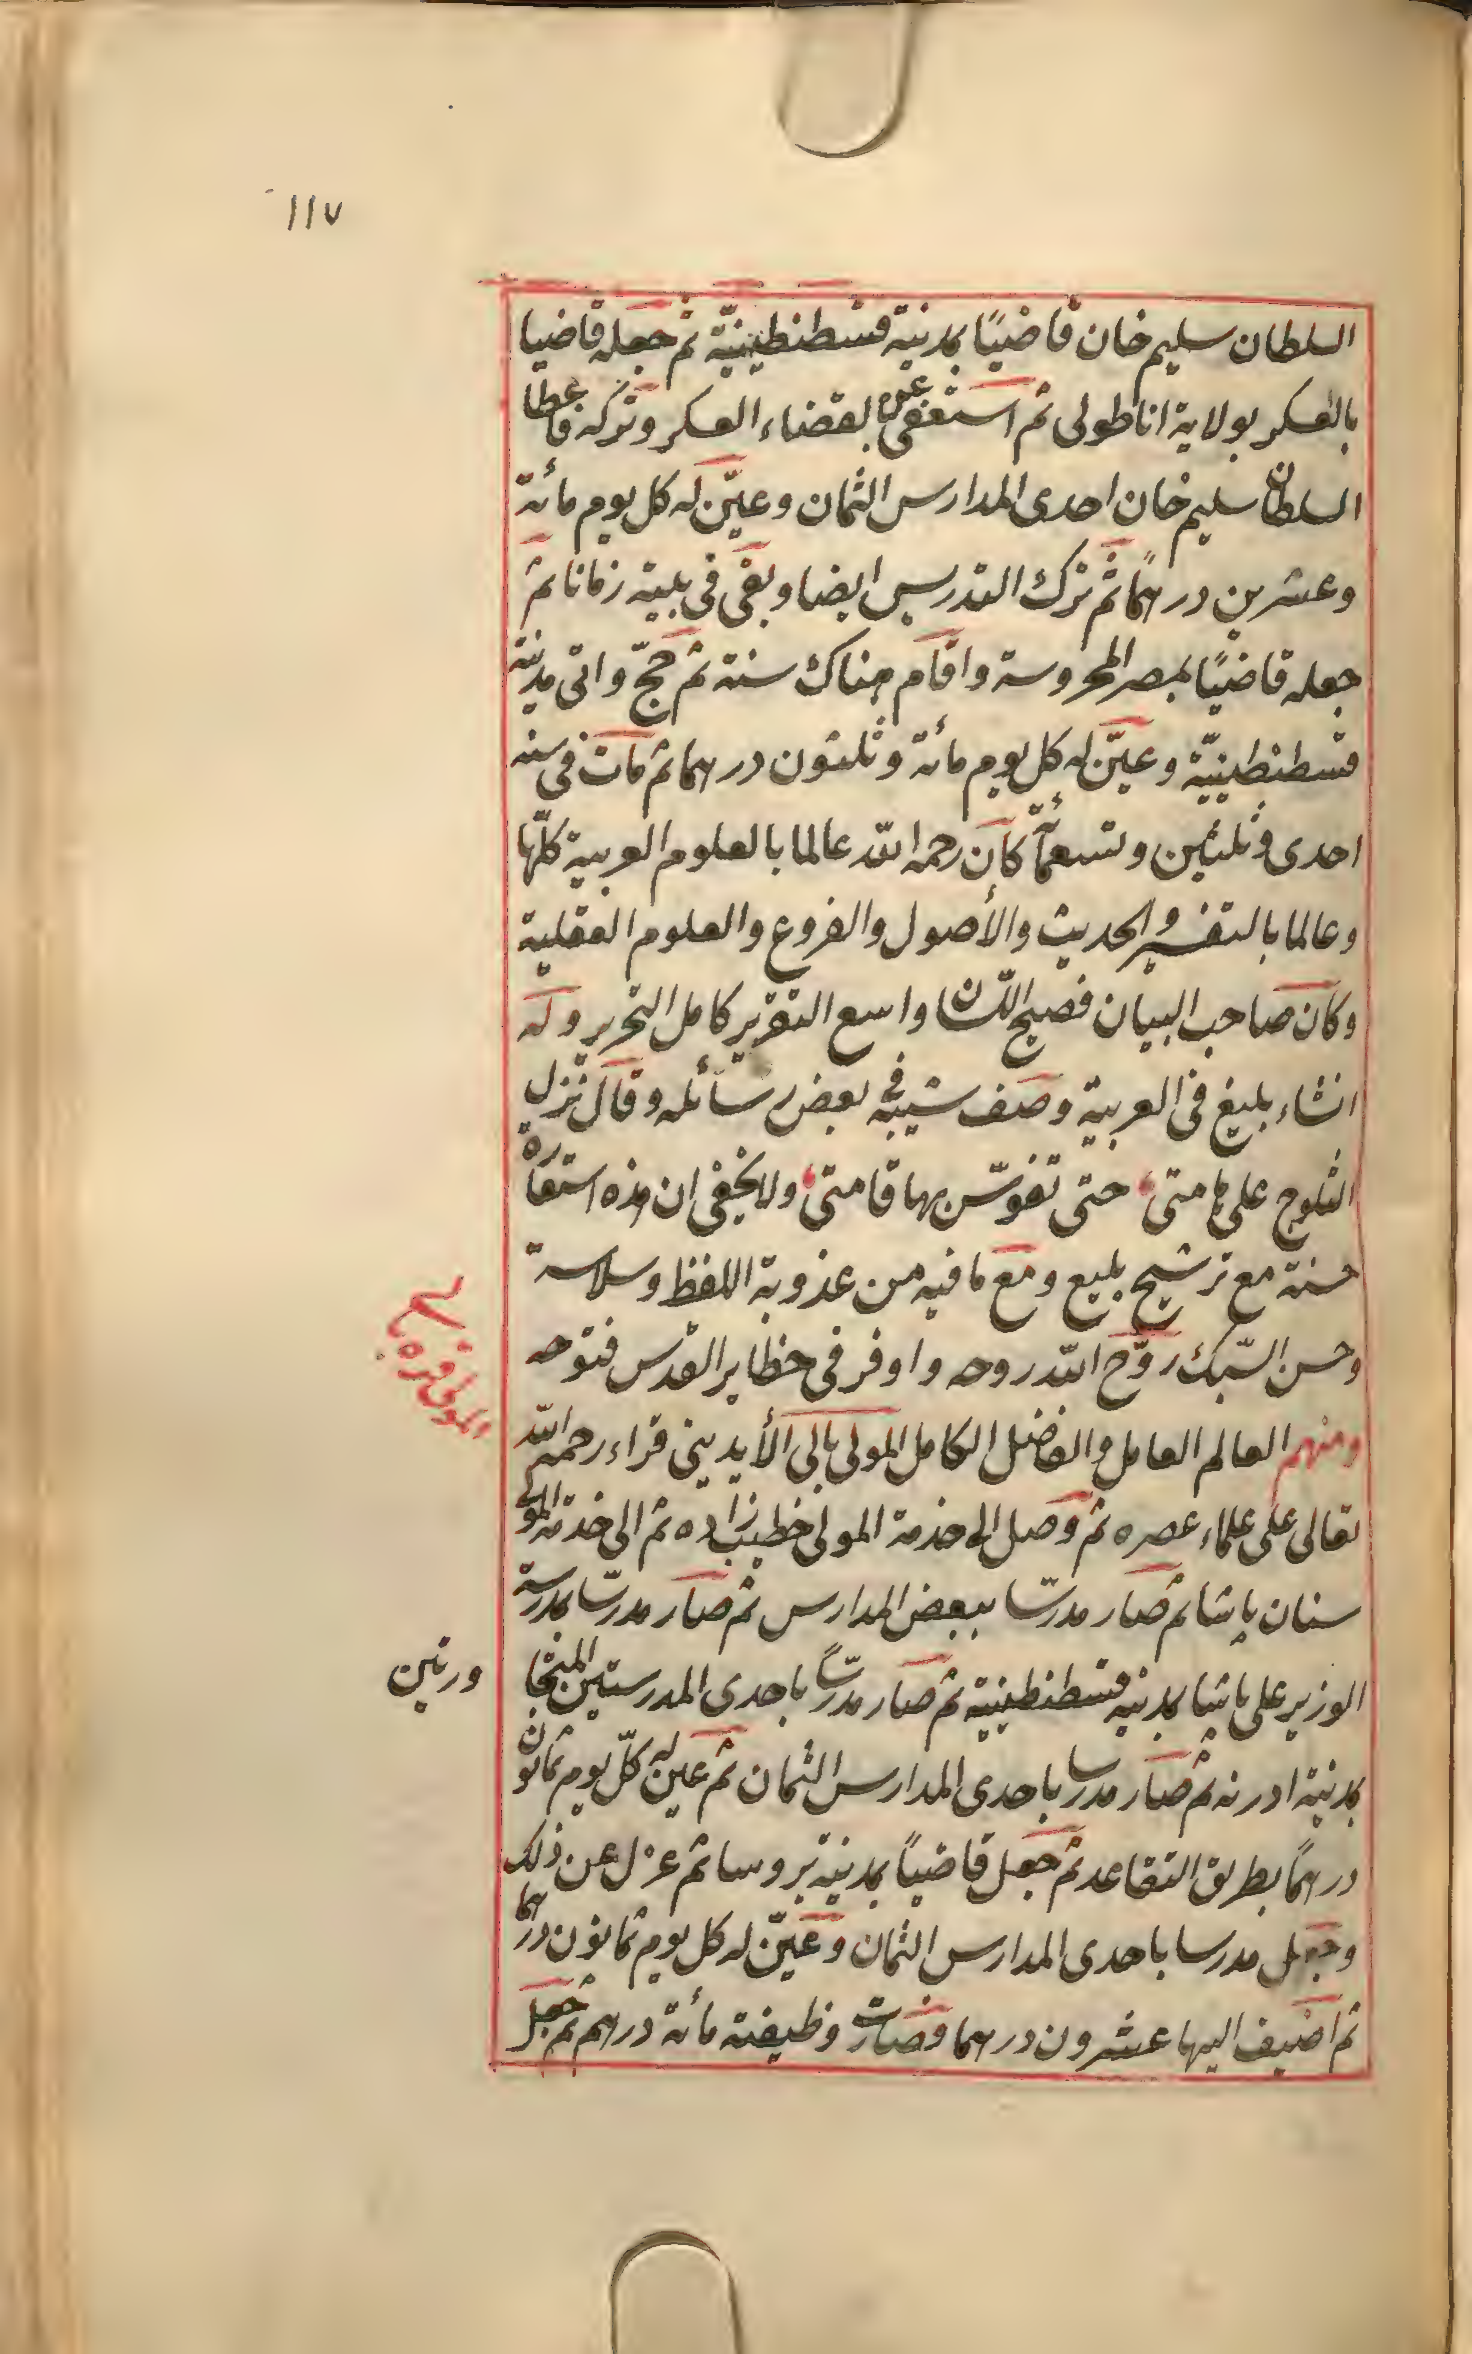 ١١٧
السلطان سليم خان قاضيًا بمدينة قسطنطينيّة ثم جعله قاضيا
بالعسكر بولاية اناطولى ثم استعفى عن القضاء العسكر وتركه فاعطا
السلطان سليم خان احدى المدارس الثمان وعيّن له كل يوم مائة
وعشرين درهمًا ثم ترك التدريس ايضا وبقى فى بيته زمانا ثم
جعله قاضيًا بمصر المحروسة واقام هناك سنة ثم حجّ واتى مدينة
قسطنطينيّة وعيّن له كل يوم مائة وثلثون درهما ثم مات فى سنة
احدى وثلثين وتسعمائة كان رحمه الله عالما بالعلوم العربية كلّها
وعالما بالتفسير والحديث والأصول والفروع والعلوم العقلية
وكان صاحب البيان فصيح اللسان واسع التقرير كامل التحرير وله
انشاء بليغ فى العربية وصف شيبه فى بعض رسائله وقال نزل
الثلوج على هامتى حتى تقوّس بها قامتى ولا يخفى ان هذه استعارة
حسنة مع ترشيح بليع ومع ما فيه من عذوبة اللفظ وسلاسة
وحسن السّبك روّح الله روحه واوفر فى حظاير القدس فتوحه
ومنهم العالم العامل والفاضل الكامل المولى بالى الأيدينى قراء رحمه الله
تعالى على علماء عصره ثم وصل الى خدمة المولى خطيب زاده ثم الى خدمة المولى
سنان پاشا ثم صار مدرسا ببعض المدارس ثم صار مدرسا بمدرسة
الوزير على پاشا بمدينه قسطنطينية ثم صار مدرسًا باحدى المدرستين المتجا
ورتين
بمدينة ادرنه ثم صار مدرسا باحدى المدارس الثمان ثم عين له كلّ يوم ثمانون
درهمًا بطريق التقاعد ثم جعل قاضيًا بمدينة بروسا ثم عزل عن ذلك
وجعل مدرسا باحدى المدارس الثمان وعيّن له كل يوم ثمانون درهما
ثم اضيف اليها عشرون درهما وصارت وظيفته مائة درهم ثم جعل